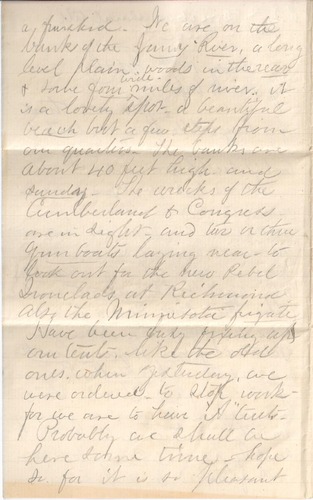 a fine kind. We are on the
banks of the James River, a long
level plain woods in the rear
wide
& some four miles of river. it
is a lovely spot. a beautiful
beach but a few steps from
our quarters. The banks are
about 40 feet high and
sandy. The wrecks of the
Cumberland & Congress
are in sight - and two or three
Gun boats laying near - to
look out for the new Rebel
Ironclads at Richmond
also the Minnesota frigate
Have been busy fixing up
our tents. like the old
ones. when yesterday, we
were ordered to stop work -
for we are to have "A" tents.
Probably we shall be
here some time - hope
so for it is so pleasant